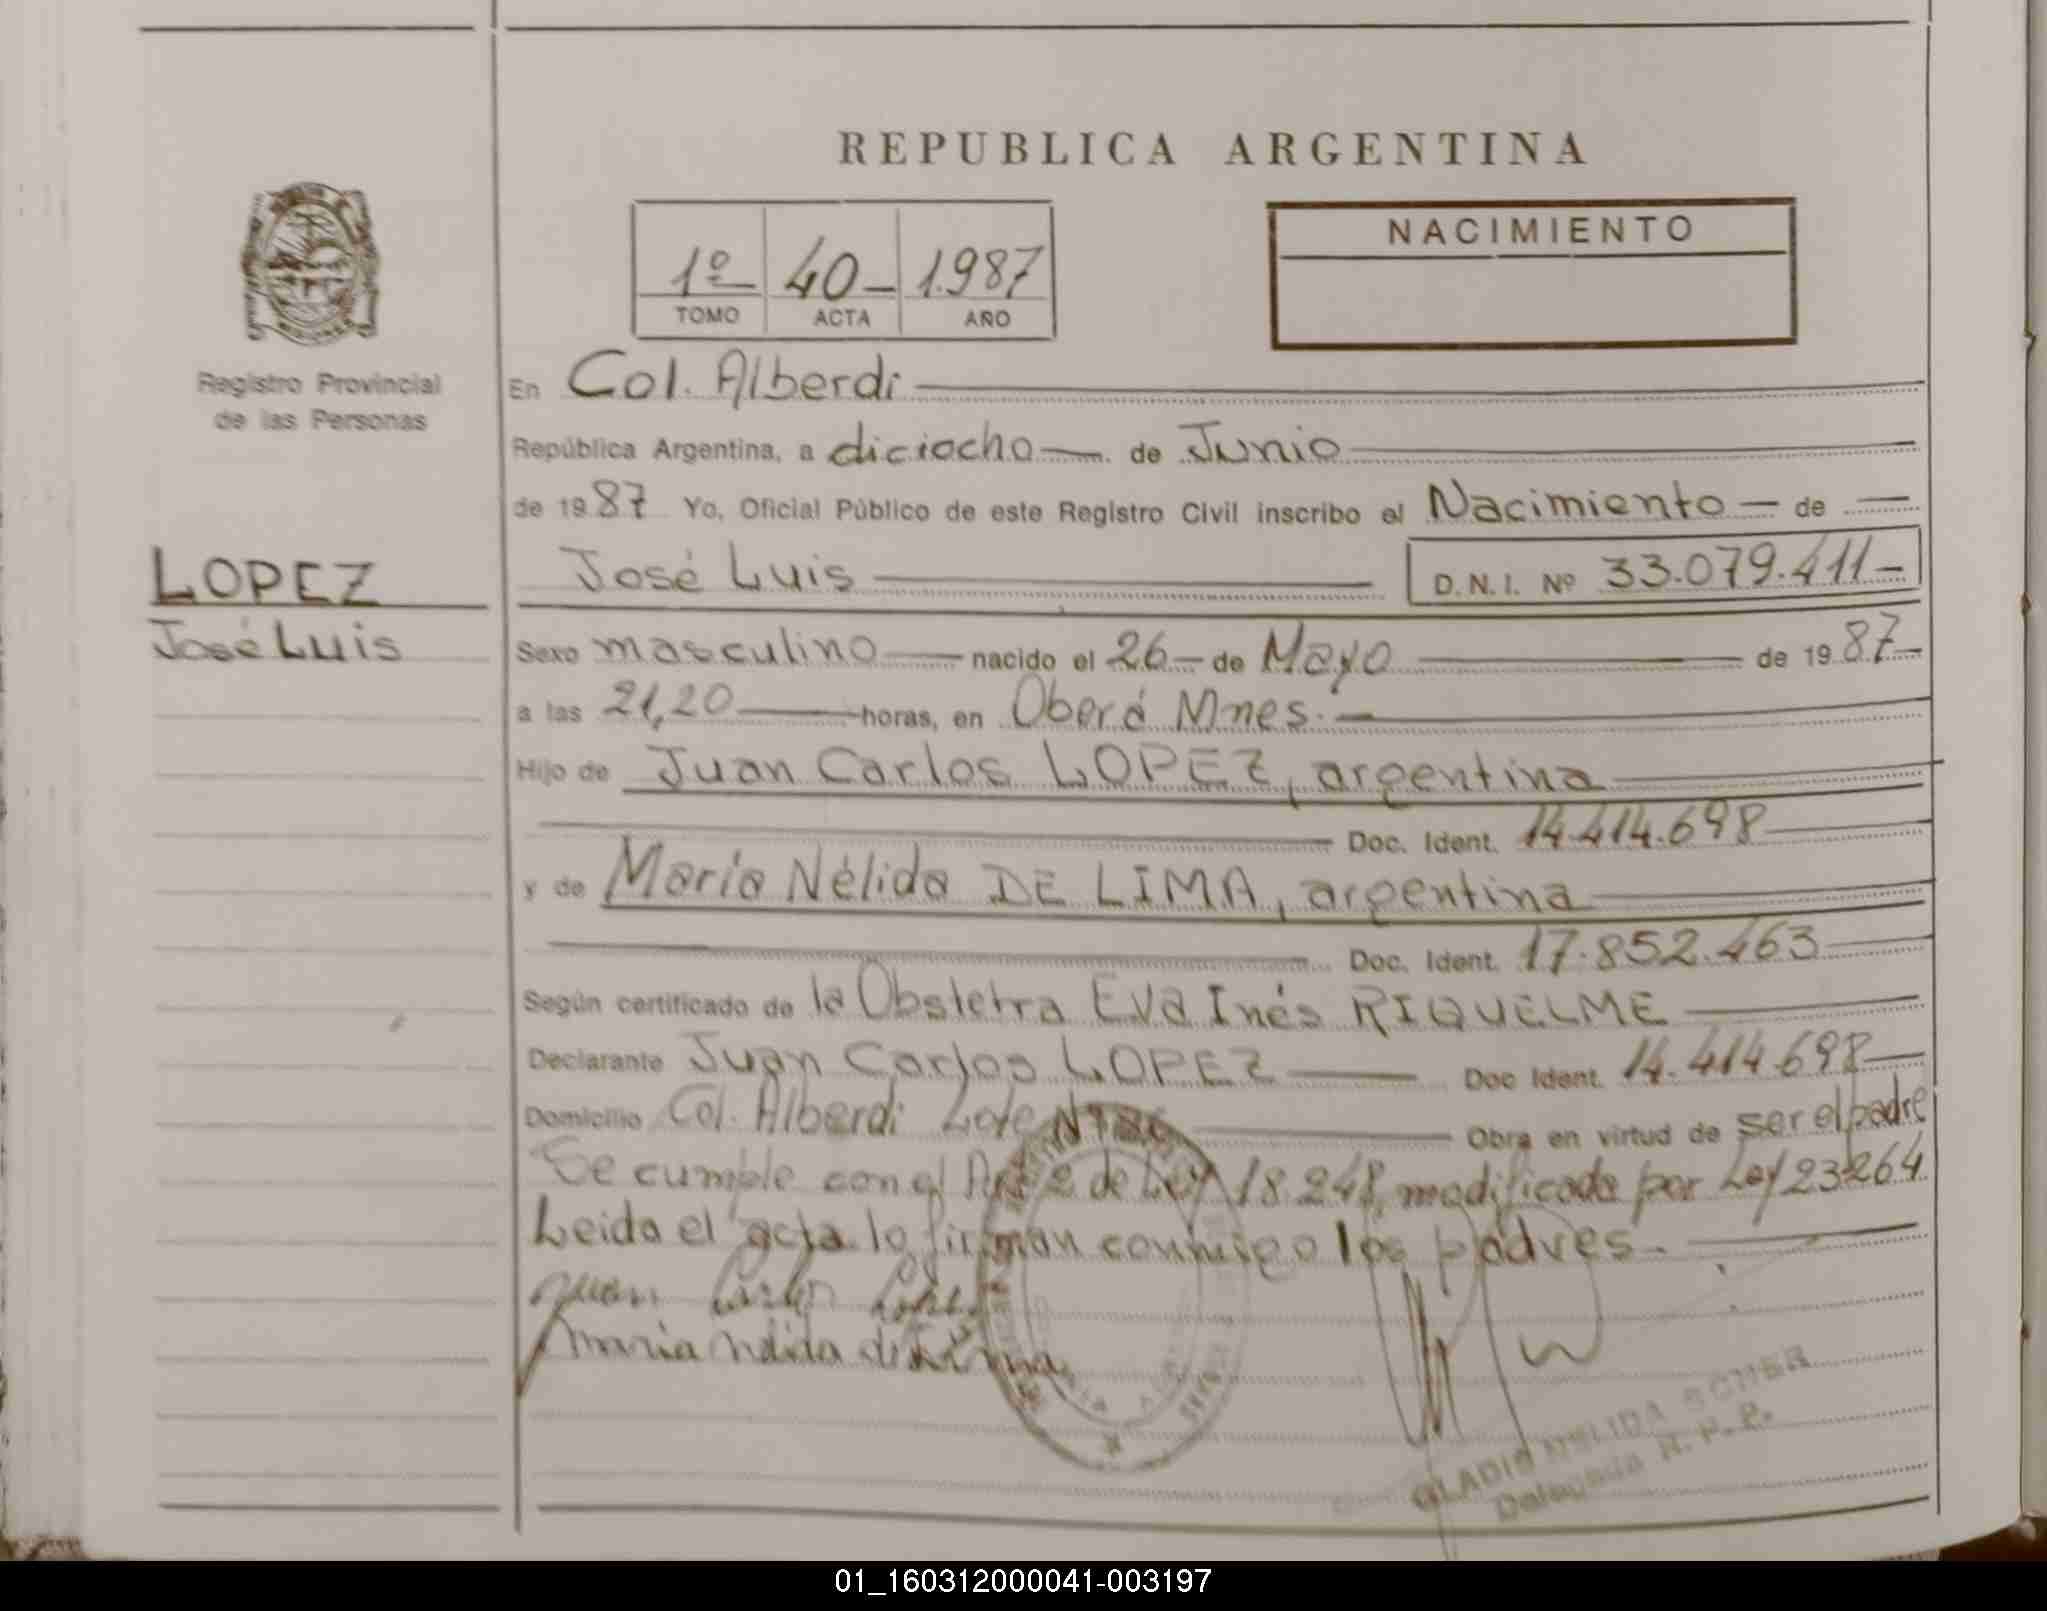 REPUBLICA ARGENTINA
1º 40 1.987
TOMO ACTA AÑO
NACIMIENTO
Registro Provincial
de las Personas
LOPEZ
José Luis
En Col. Alberdi
República Argentina, a diciocho de Junio
de 1987 Yo, Oficial Público de este Registro Civil inscribo el Nacimiento de
José Luis D.N.I. Nº 33.079.411
Sexo masculino nacido el 26 de Mayo de 1987
a las 21,20 horas, en Oberá Mnes.
Hijo de Juan Carlos LOPEZ, argentina
Doc. Ident. 14.414.698
y de María Nélida DE LIMA, argentina
Doc. Ident. 17.852.463
Según certificado de la Obstetra Eva Inés RIQUELME
Declarante Juan Carlos LOPEZ Doc Ident. 14.414.698
Domicilio Col. Alberdi Lote Obra en virtud de ser el padre
Se cumple con el Art 2 de Ley 18.248, modificada por Ley 23264
Leida el acta la firman conmigo los padres.
Juan Carlos Lopez
Maria Nélida de Lima
GLADIS NELIDA
Delegada R. P. P.
01_160312000041-003197